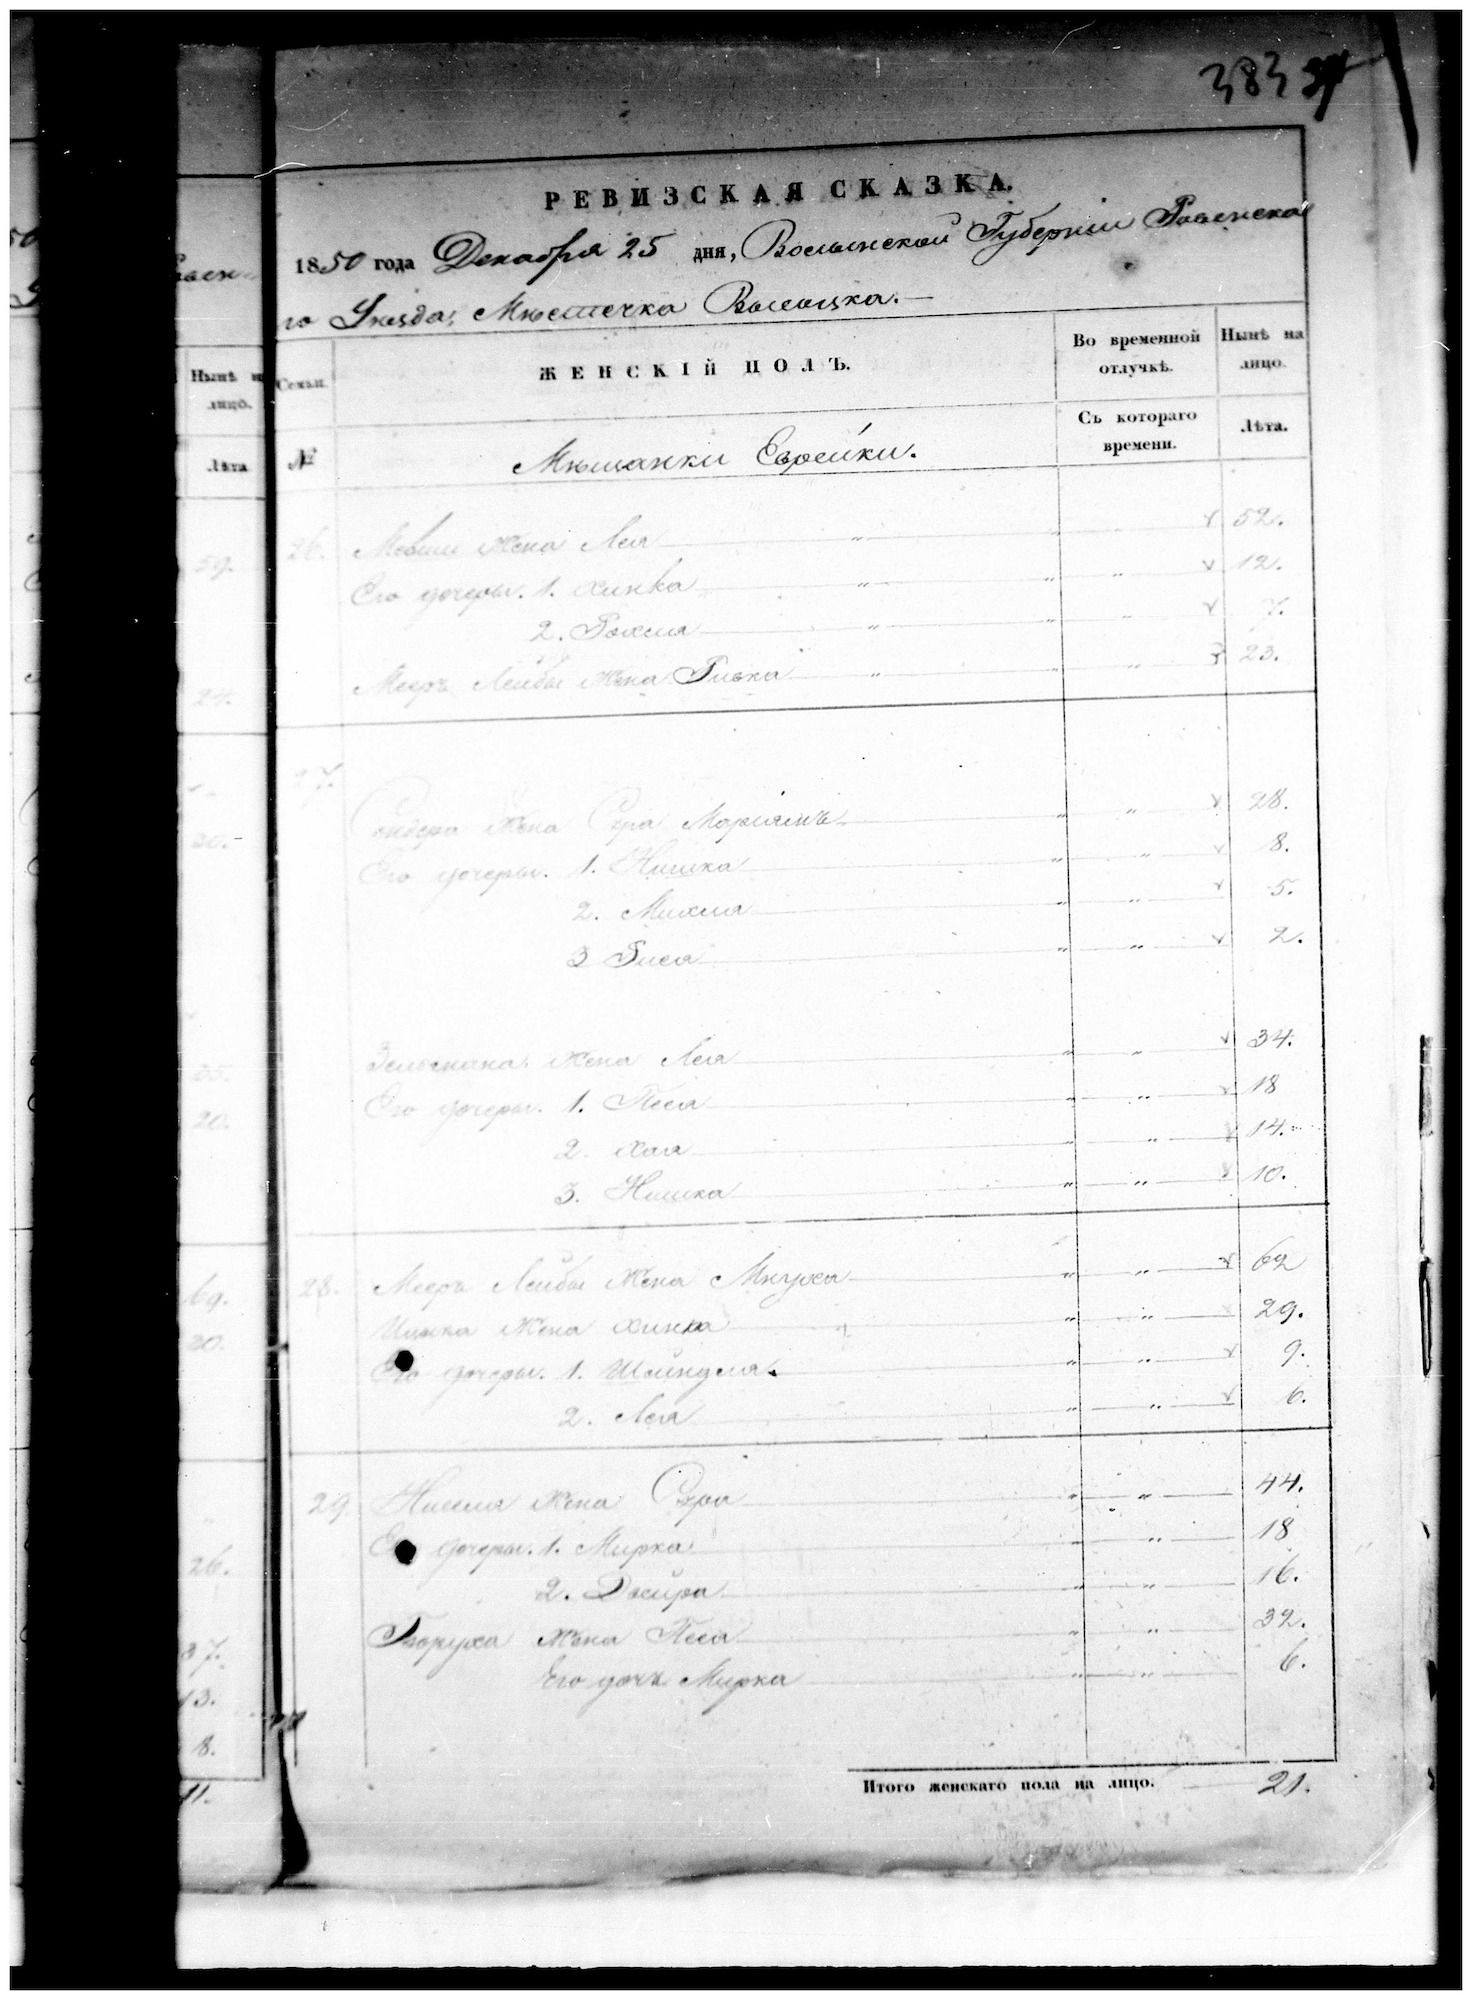 383
РЕВИЗСКАЯ СКАЗКА.
1850 года Декабря 25 дня, Волынской Губерніи Ровенска
го Уезда, Мѣстечка Высоцка.
Семьи.
ЖЕНСКІЙ ПОЛЪ.
Во временной отлучкѣ.
Нынѣ на лицо.
№
Мѣщанки Еврейки.
Съ котораго времени.
Лѣта.
26. Мовши жена Лея 52.
Его дочери. 1. Хинка 12.
2. Рохля 7.
Мееръ Лейбы жена Ривка 23.
27.
Сендера жена Сура Маріямъ 28.
Его дочери. 1. Нишка 8.
2. Михля 5.
3 Риса 2.
Зельмана жена Лея 34.
Его дочери. 1. Песя 18
2. Хая 14.
3. Нишка 10.
28. Мееръ Лейбы жена Мнуха 62
Ицка жена Хинка 29.
Его дочери. 1. Шейндля 9.
2. Лея 6.
29. Ниселя жена Сура 44.
Его дочери. 1. Мирка 18
2. Двейра 16.
Боруха жена Песя 32.
Его дочь Мирка 6.
Итого женскаго пола на лицо. 21.
Нынѣ на
лицо.
Лѣта
59.
24.
30.
20.
69.
30.
26.
37.
13.
8.
11.